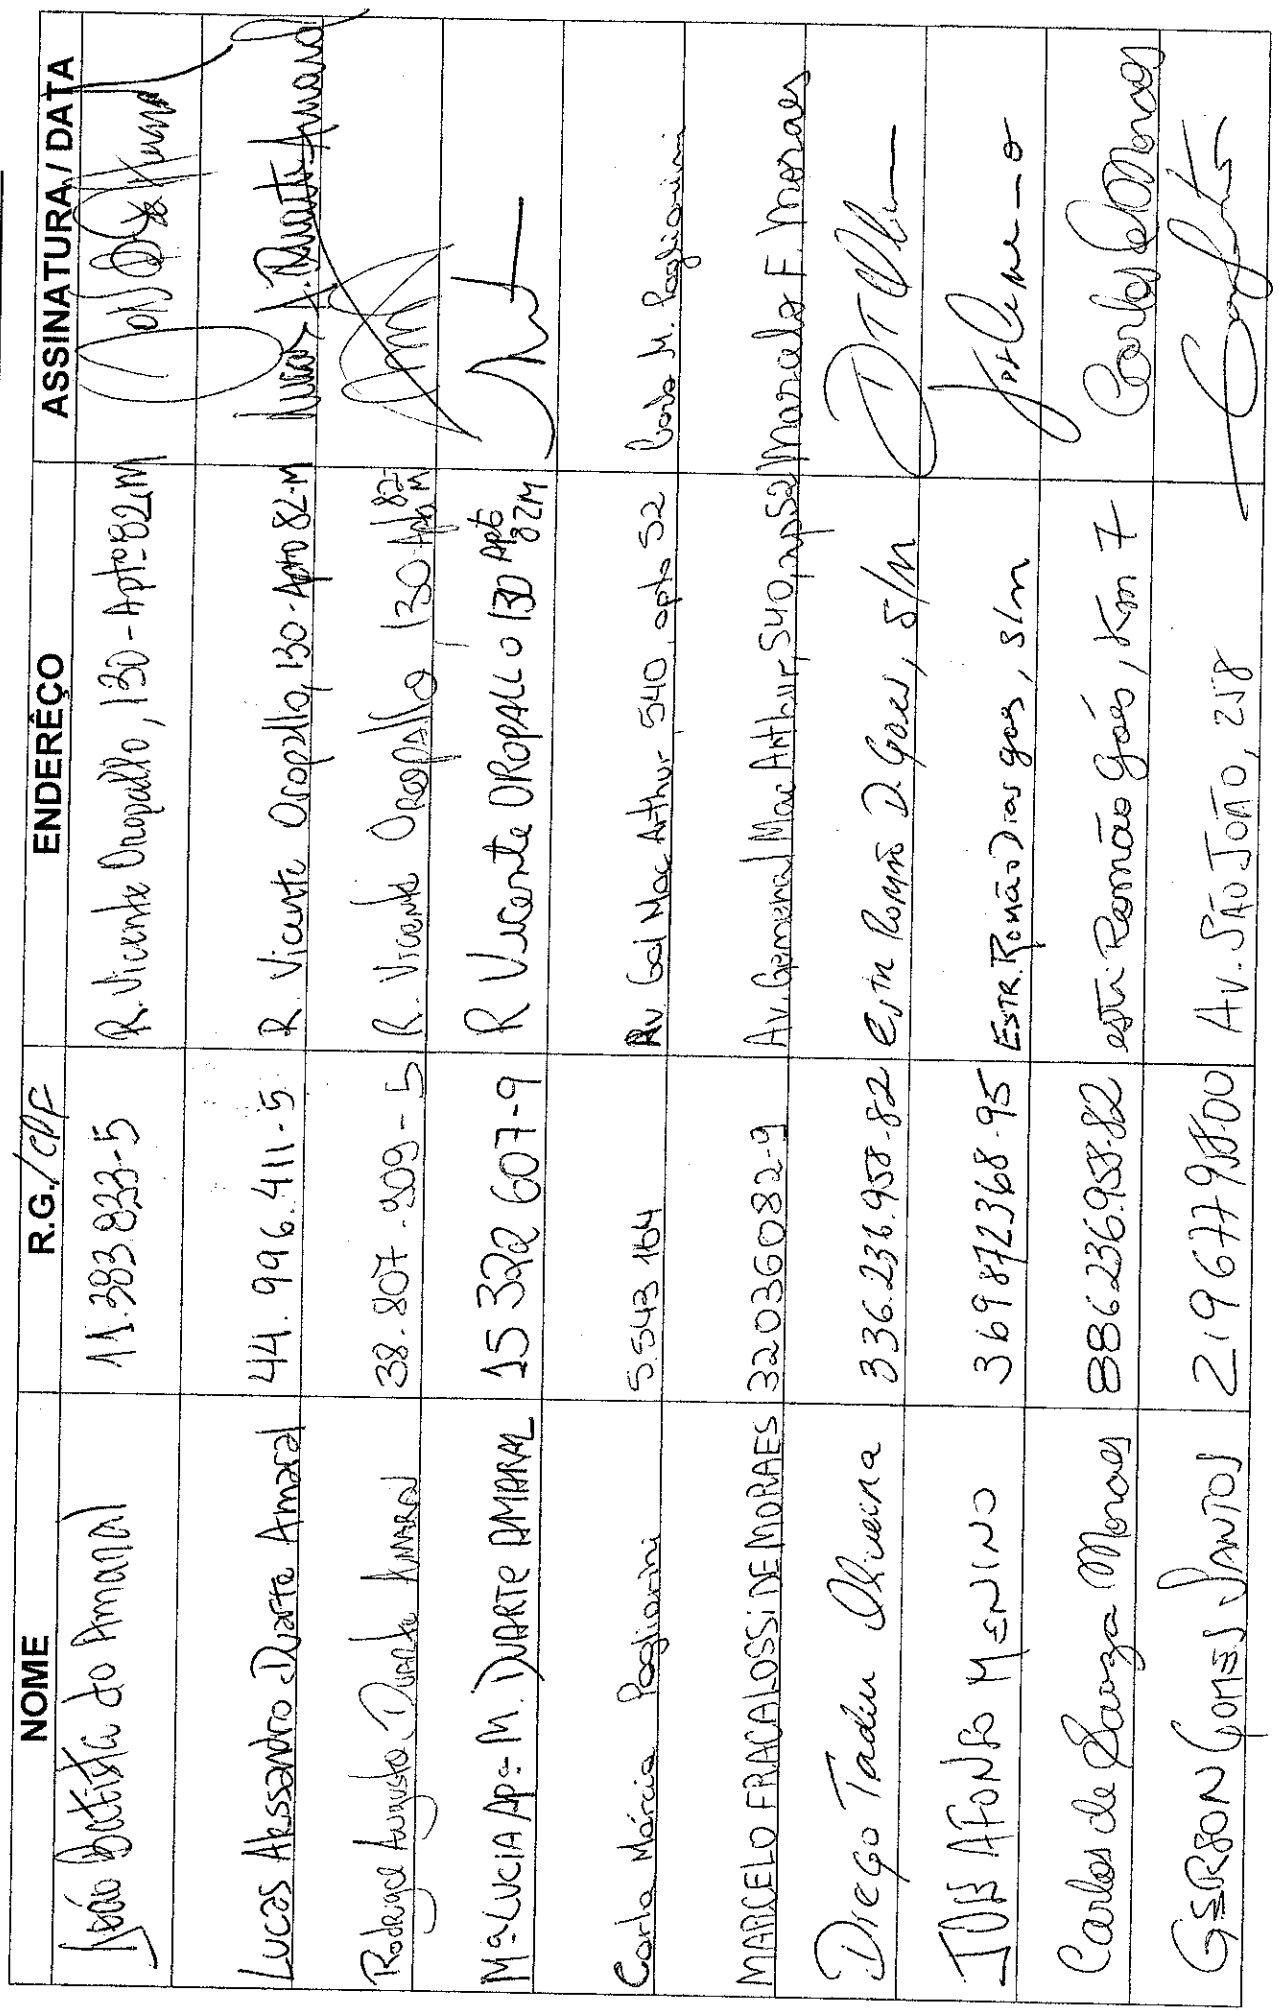 NOME R.G./CPF ENDERÊÇO ASSINATURA / DATA
João Batista do Amaral 11.383.833-5 R. Vicente Oropallo, 130 - Aptº 82M
Lucas Alessandro Duarte Amaral 44.996.411-5 R. Vicente Oropallo, 130 - Apto 82-M Lucas A. Duarte Amaral
Rodrigo Augusto Duarte Amaral 38.807.909-5 R. Vicente Oropallo 130 Apto 82-M
Mª LUCIA Apª M. DUARTE AMARAL 15 322 607-9 R Vicente OROPALLO 130 Apto 82M
Carla Márcia Pagliarini 5.543 164 Av. Gal Mac Arthur 540, apto 52 Carla M. Pagliarini
MARCELO FRACALOSSI DE MORAES 32036082-9 Av. General Mac Arthur, 540, ap 52 Marcelo F. Moraes
Diego Tadeu Oliveira 336.236.958-82 Estr Romão D. Goes, S/N
JOB AFONSO MENINO 369872368-95 ESTR. Romão Dias goes, S/N
Carlos de Souza Moraes 886236958-82 estr. Ramão Góes, Km 7 Carlos de S Moraes
GERSON GOMES SANTOS 21967795800 AV. SÃO JOÃO, 258